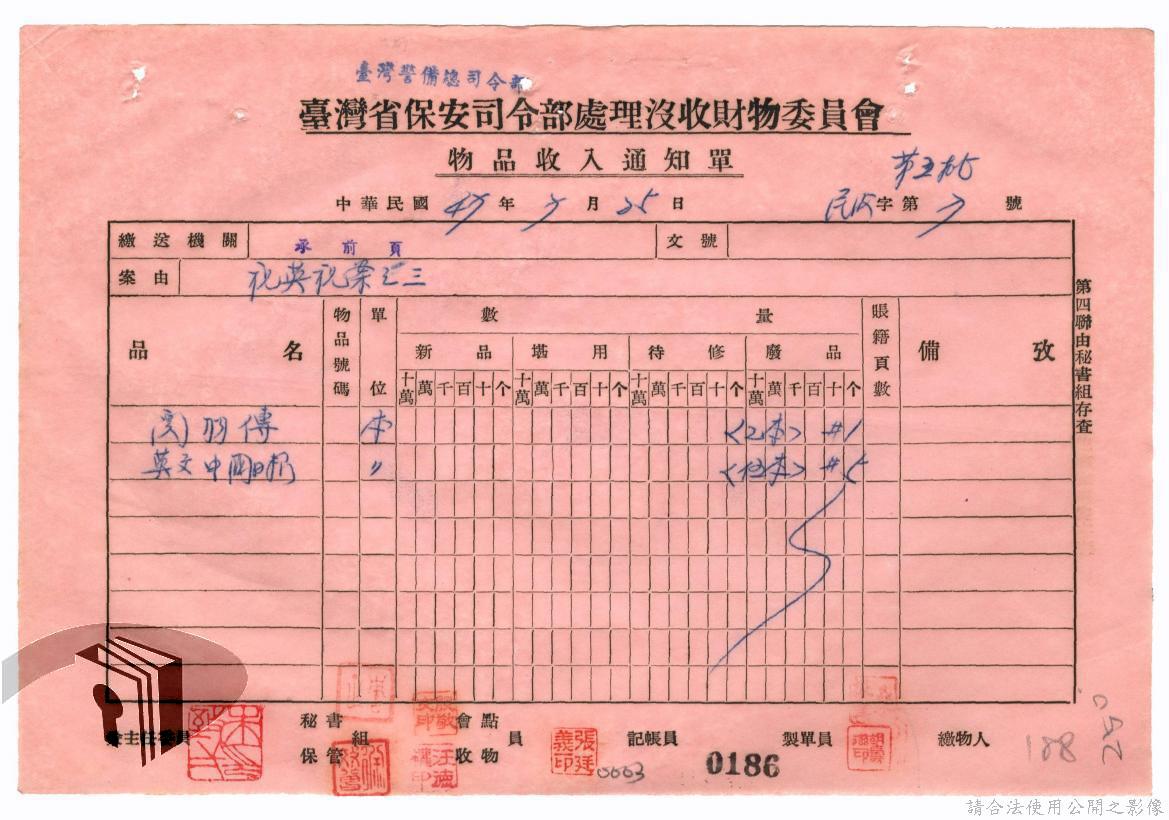 臺灣警備總司令部
臺灣省保安司令部處理沒收財物委員會
物品收入通知單
第五批
中華民國 年 月 25 日
字第 號
繳送機關 承前頁 文號
案由
品名 物品號碼 單位 數量 賬籍頁數 備攷
新品 堪用 待修 廢品
十萬 萬 千 百 十 个 十萬 萬 千 百 十 个 十萬 萬 千 百 十 个 十萬 萬 千 百 十 个
羽傳 本 <2本> #1
英文中國日報 〃 #5
第四聯由秘書組存查
主任委員 秘書組 保管 會點收物員 記帳員 製單員 繳物人
張廷義印
0003
0186
188
252
請合法使用公開之影像